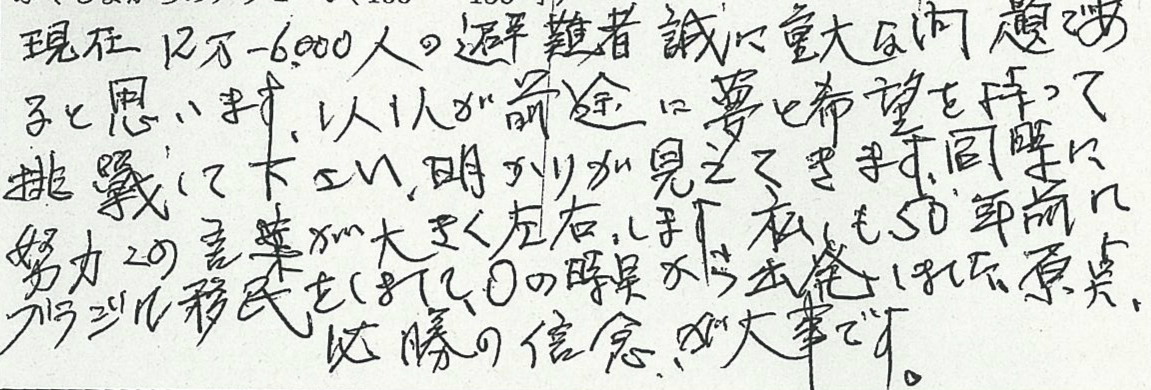 現在12万-6000人の避難者誠に重大な問題であ
ると思います、1人1人が前途に夢と希望を持って
挑戦して下さい、明かりが見えてきます、同時に
努力この言葉が大きく左右します、私も50年前に
ブラジル移民をしまして、0の時点から出発しました、原点、
必勝の信念、が大事です。